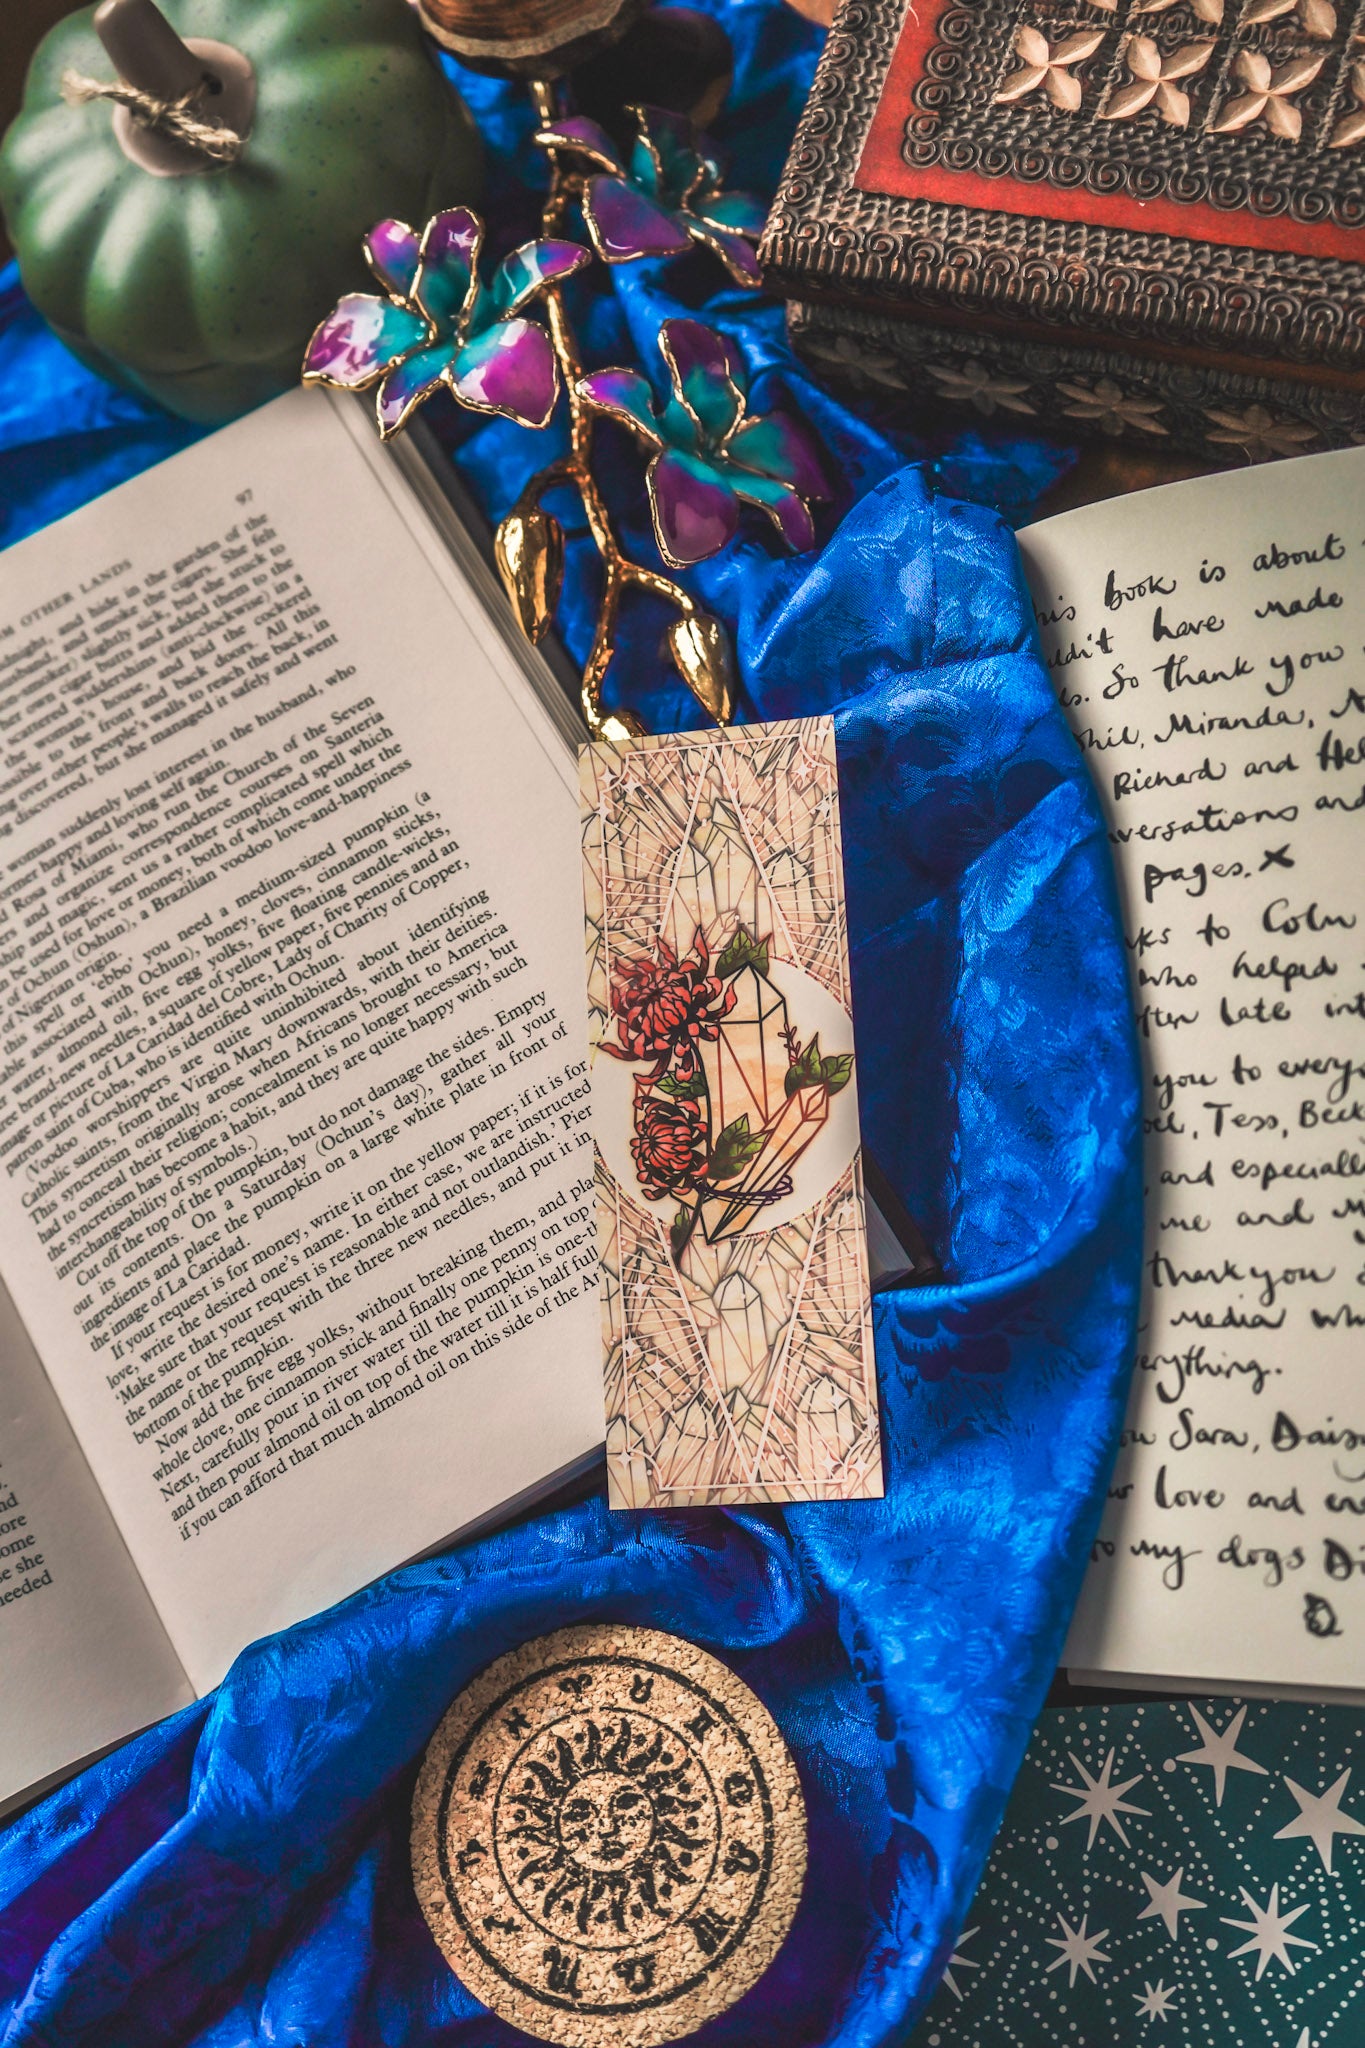 M OTHER LANDS
97
dnight, and hide in the garden of the
usband, and smoke the cigars. She felt
n-smoker) slightly sick, but she stuck to
her own cigar butts and added them to the
scattered widdershins (anti-clockwise) in a
the woman's house, and hid the cockerel
ssible to the front and back doors. All this
ng over other people's walls to reach the back, in
g discovered, but she managed it safely and went
woman suddenly lost interest in the husband, who
ormer happy and loving self again.
d Rosa of Miami, who run the Church of the Seven
ers and organize correspondence courses on Santeria
ship and magic, sent us a rather complicated spell which
n be used for love or money, both of which come under the
e of Ochun (Oshun), a Brazilian voodoo love-and-happiness
of Nigerian origin.
this spell or 'ebbo' you need a medium-sized pumpkin (a
table associated with Ochun), honey, cloves, cinnamon sticks,
er water, almond oil, five egg yolks, five floating candle-wicks,
hree brand-new needles, a square of yellow paper, five pennies and an
image or picture of La Caridad del Cobre, Lady of Charity of Copper,
patron saint of Cuba, who is identified with Ochun.
(Voodoo worshippers are quite uninhibited about identifying
Catholic saints, from the Virgin Mary downwards, with their deities.
This syncretism originally arose when Africans brought to America
had to conceal their religion; concealment is no longer necessary, but
the syncretism has become a habit, and they are quite happy with such
interchangeability of symbols.)
Cut off the top of the pumpkin, but do not damage the sides. Empty
out its contents. On a Saturday (Ochun's day), gather all your
ingredients and place the pumpkin on a large white plate in front of
the image of La Caridad.
If your request is for money, write it on the yellow paper; if it is for
love, write the desired one's name. In either case, we are instructed
'Make sure that your request is reasonable and not outlandish.' Pier
the name or the request with the three new needles, and put it in
bottom of the pumpkin.
Now add the five egg yolks, without breaking them, and pla
whole clove, one cinnamon stick and finally one penny on top
Next, carefully pour in river water till the pumpkin is one-th
and then pour almond oil on top of the water till it is half full
if you can afford that much almond oil on this side of the At
nd
ore
ome
se she
needed
his book is about
uldn't have made
es. So thank you
Phil, Miranda, N
Richard and Hel
nversations and
pages. x
nks to Colm
who helped
often late int
you to every
oel, Tess, Beck
and especiall
me and My
thank you
media wh
erything.
ou Sara, Daisy
ur love and en
to my dogs Di